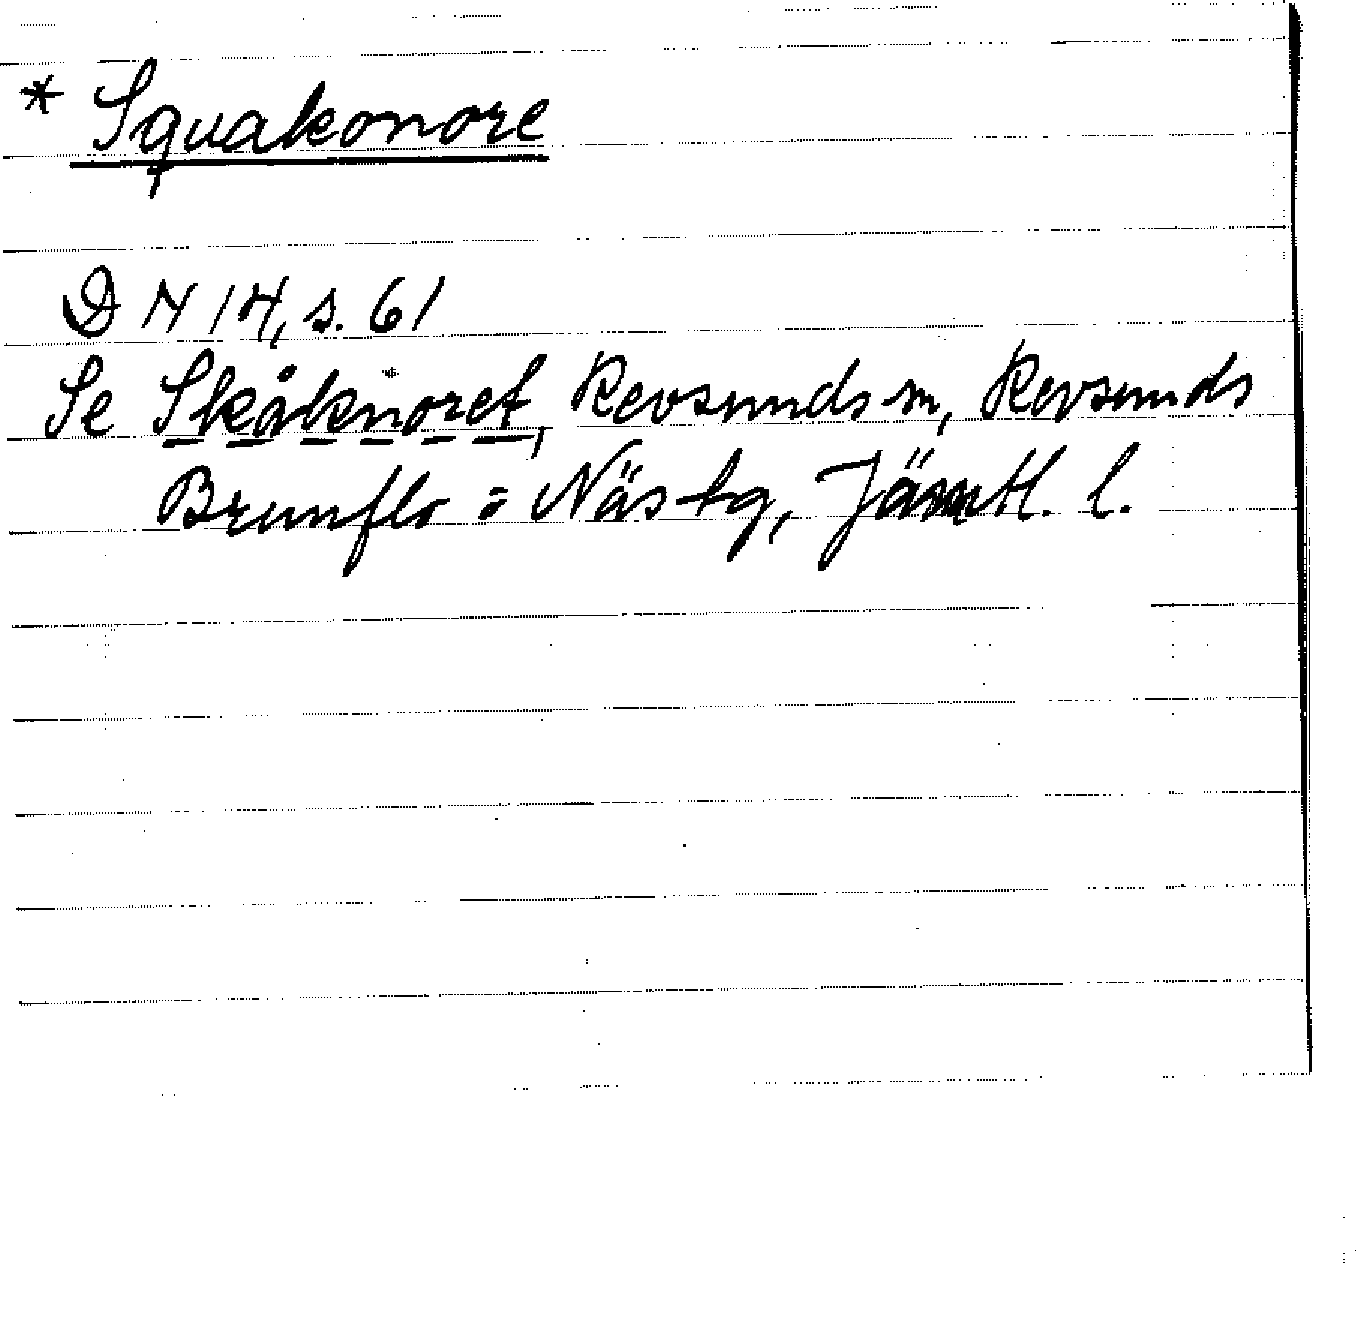 * Squakonore
D N 14, s. 61
Se Skåknoret, Revsunds sn, Revsunds
Brunflo o Näs tg, Jämtl. l.